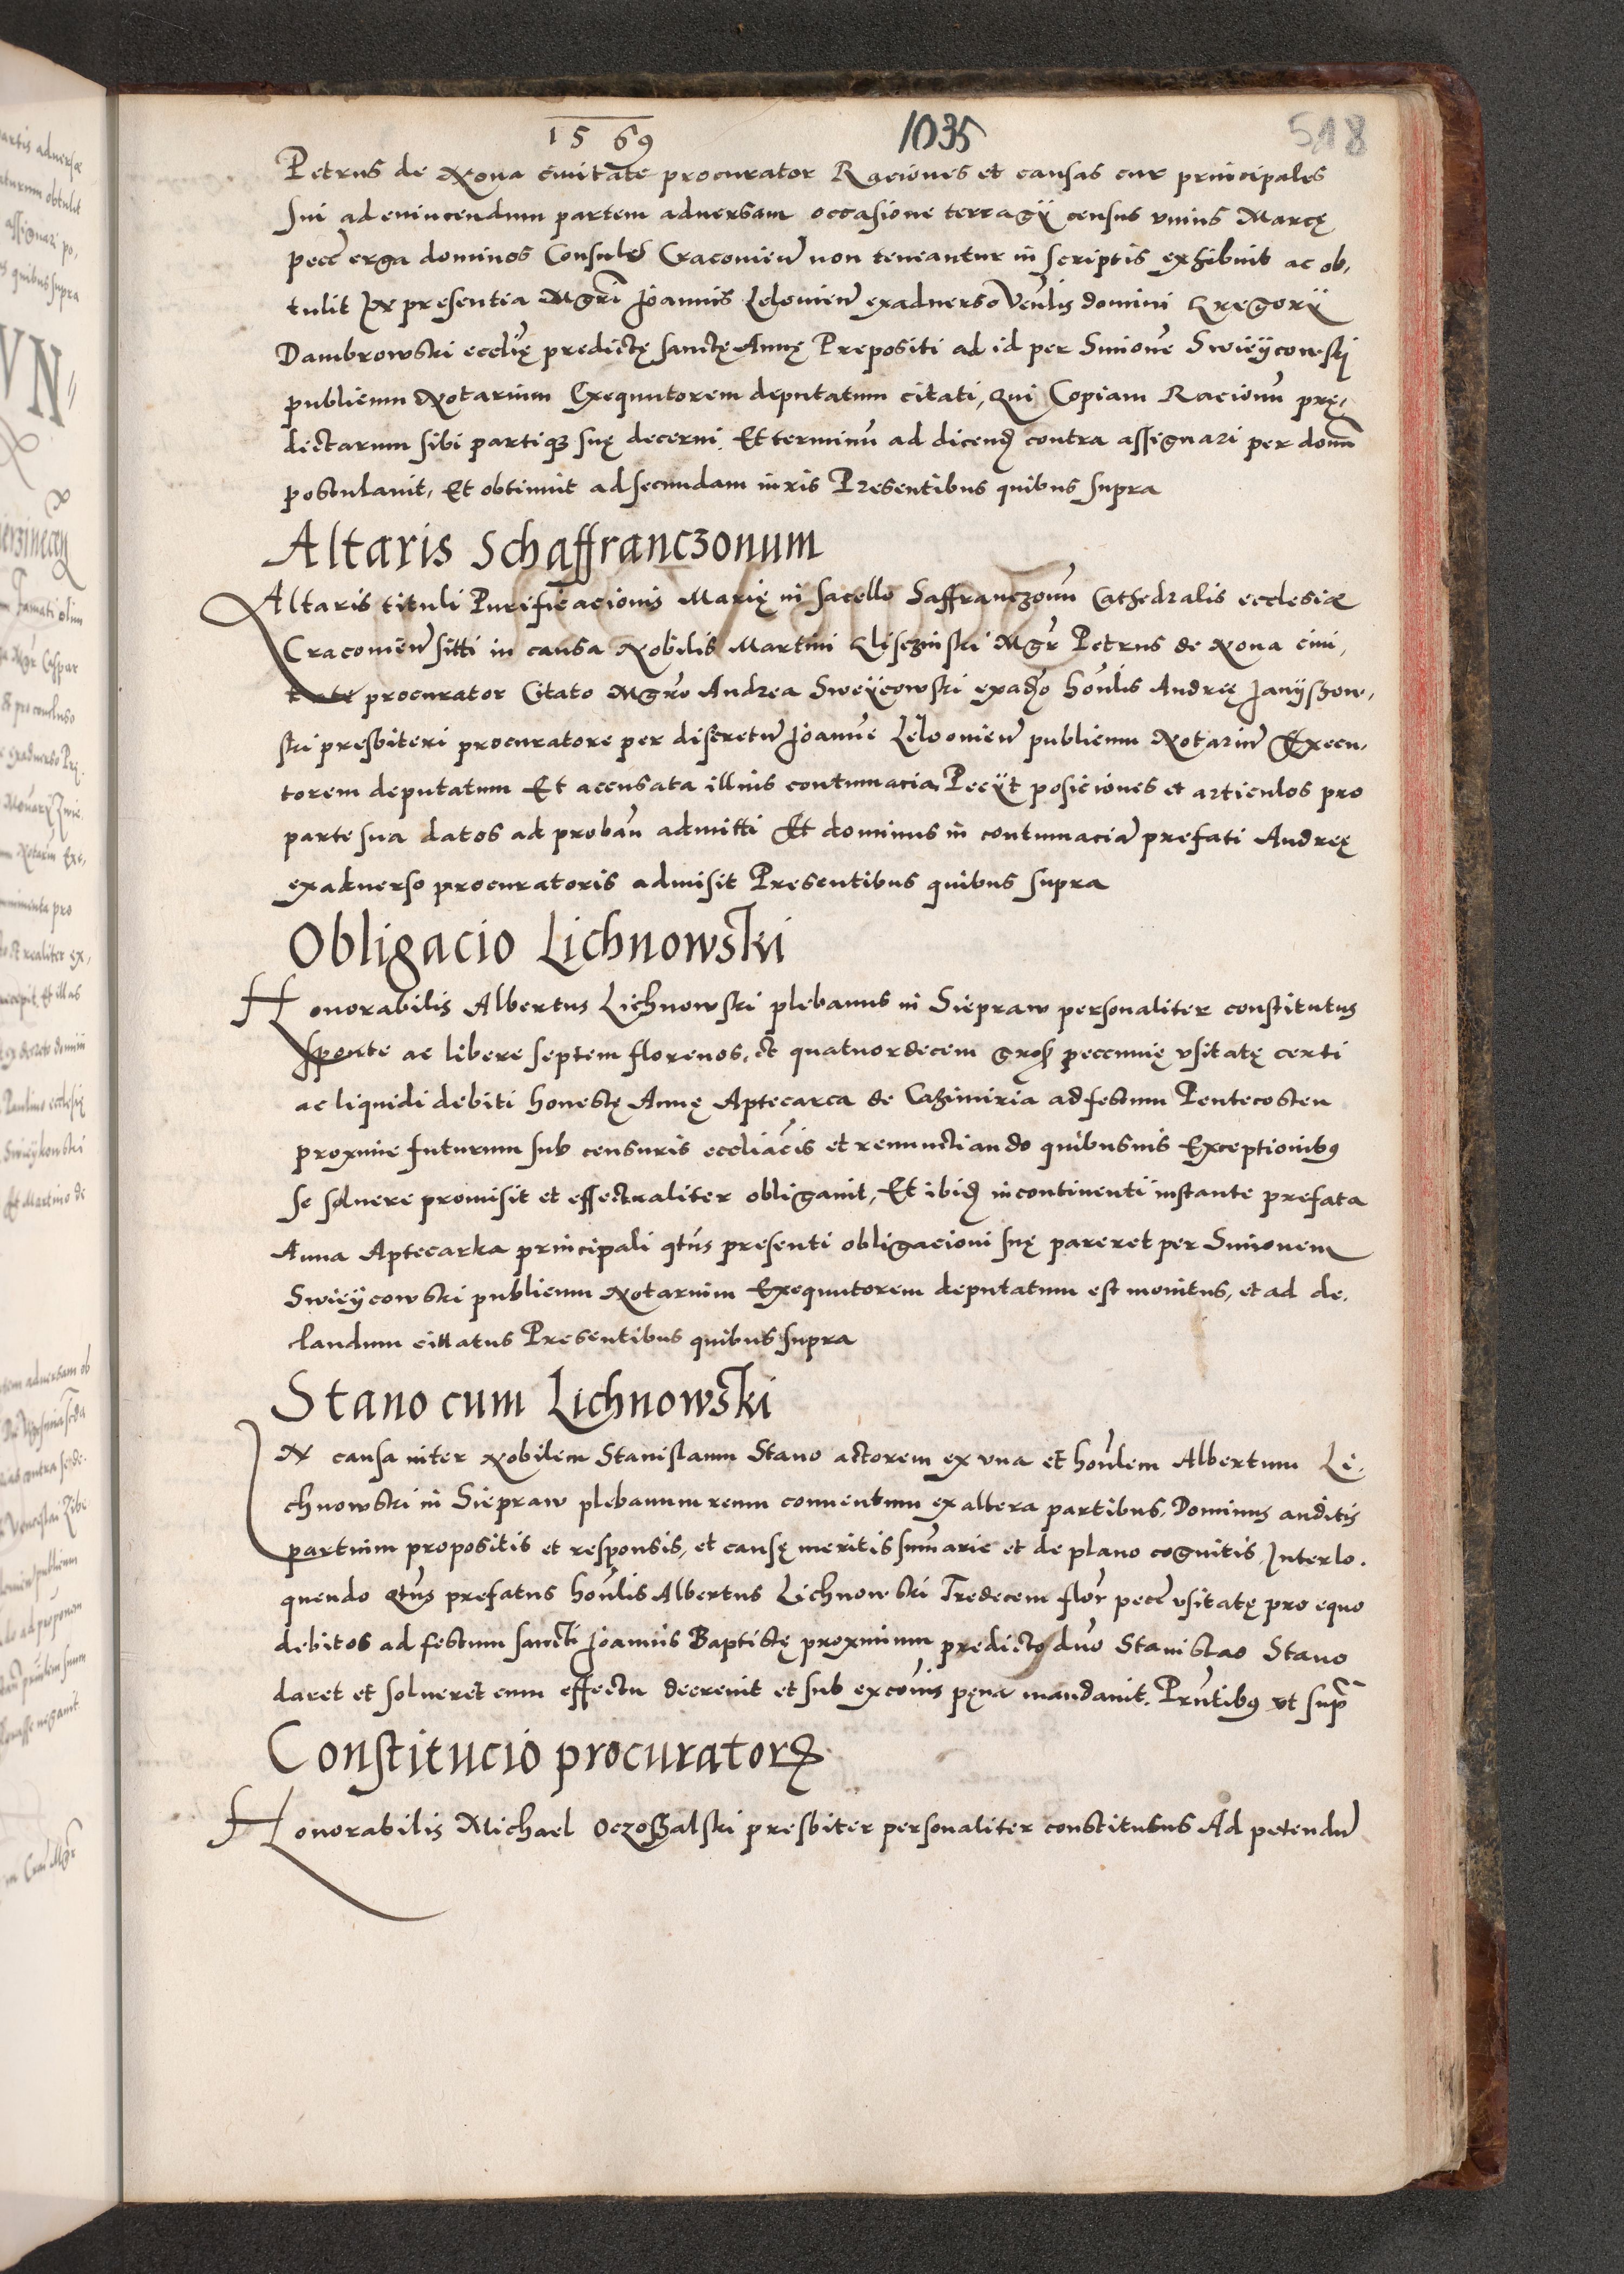 1569
1035
518
Petrus de Nova civitate procurator Raciones et causas cur principales
sui ad evincendum partem adversam occasione terragii census unius Marcę
pecc erga dominos Consules Cracovien non teneantur in scriptis exhibuit ac ob,
tulit In presentia Mgri Joannis Lelovien exadverso Venlis domini Gregorii
Dambrowski ecclię predictę sanctę Annę Prepositi ad id per Simone Swieÿcowskj
publicum Notarium Exequutorem deputatum citati, Qui Copiam Racionu prę,
dictarum sibi partiq3 suę decerni. Et terminu ad dicend contra assignari per domn
postulavit, Et obtinuit ad secundam iuris Presentibus quibus supra
Altaris Schaffranczonum
Altaris tituli Purificacionis Marię in sacello Saffranczonu Cathedralis ecclesiæ
Cracovien sitti in causa Nobilis Martini Mgr Petrus de Nova civi,
tate procurator Citato Mgro Andrea Sweÿcowski exado honlis Andreę Janÿszow,
ski presbiteri procuratore per discretu Joanne Lelovien publicum Notariu Execu,
torem deputatum Et accusata illius contumacia, Peciit posiciones et articulos pro
parte sua datos ad proban admitti Et dominus in contumacia prefati Andreę
exadverso procuratoris admisit Presentibus quibus supra
Obligacio Lichnowski
Honorabilis Albertus Lichnowski plebanus in Siepraw personaliter constitutus
sponte ac libere septem florenos, et quatuordecem gross peccunię usitatę certi
ac liquidi debiti honestę Annę Aptecarca de Cazimiria ad festum Pentecosten
proxime futurum sub censuris eccliacis et renunctiando quibusvis Exceptionibus
se solvere promisit et effectualiter obligavit, Et ibid incontinenti instante prefata
Anna Aptecarka principali qtus presenti obligacioni suę pareret per Simonem
Swieÿcowski publicum Notarium Exequutorem deputatum est monitus, et ad de,
clandum cittatus Presentibus quibus supra
Stano cum Lichnowski
IN causa inter Nobilem Stanislaum Stano actorem ex una et honlem Albertum Li,
chnowski in Siepraw plebanum reum conventum ex altera partibus, Dominus auditis
partium propositis et responsis, et causę meritis sumarie et de plano cognitis, Interlo,
quendo Qtus prefatus honlis Albertus Lichnowski Tredecem flor pecc usitatę pro equo
debitos ad festum sancti Joannis Baptistę proximum predicto dno Stanislao Stano
daret et solveret cum effectu decrevit et sub excois pęna mandavit. Prntibus ut supra
Constitucio procurator
Honorabilis Michael presbiter personaliter constitutus Ad petendu